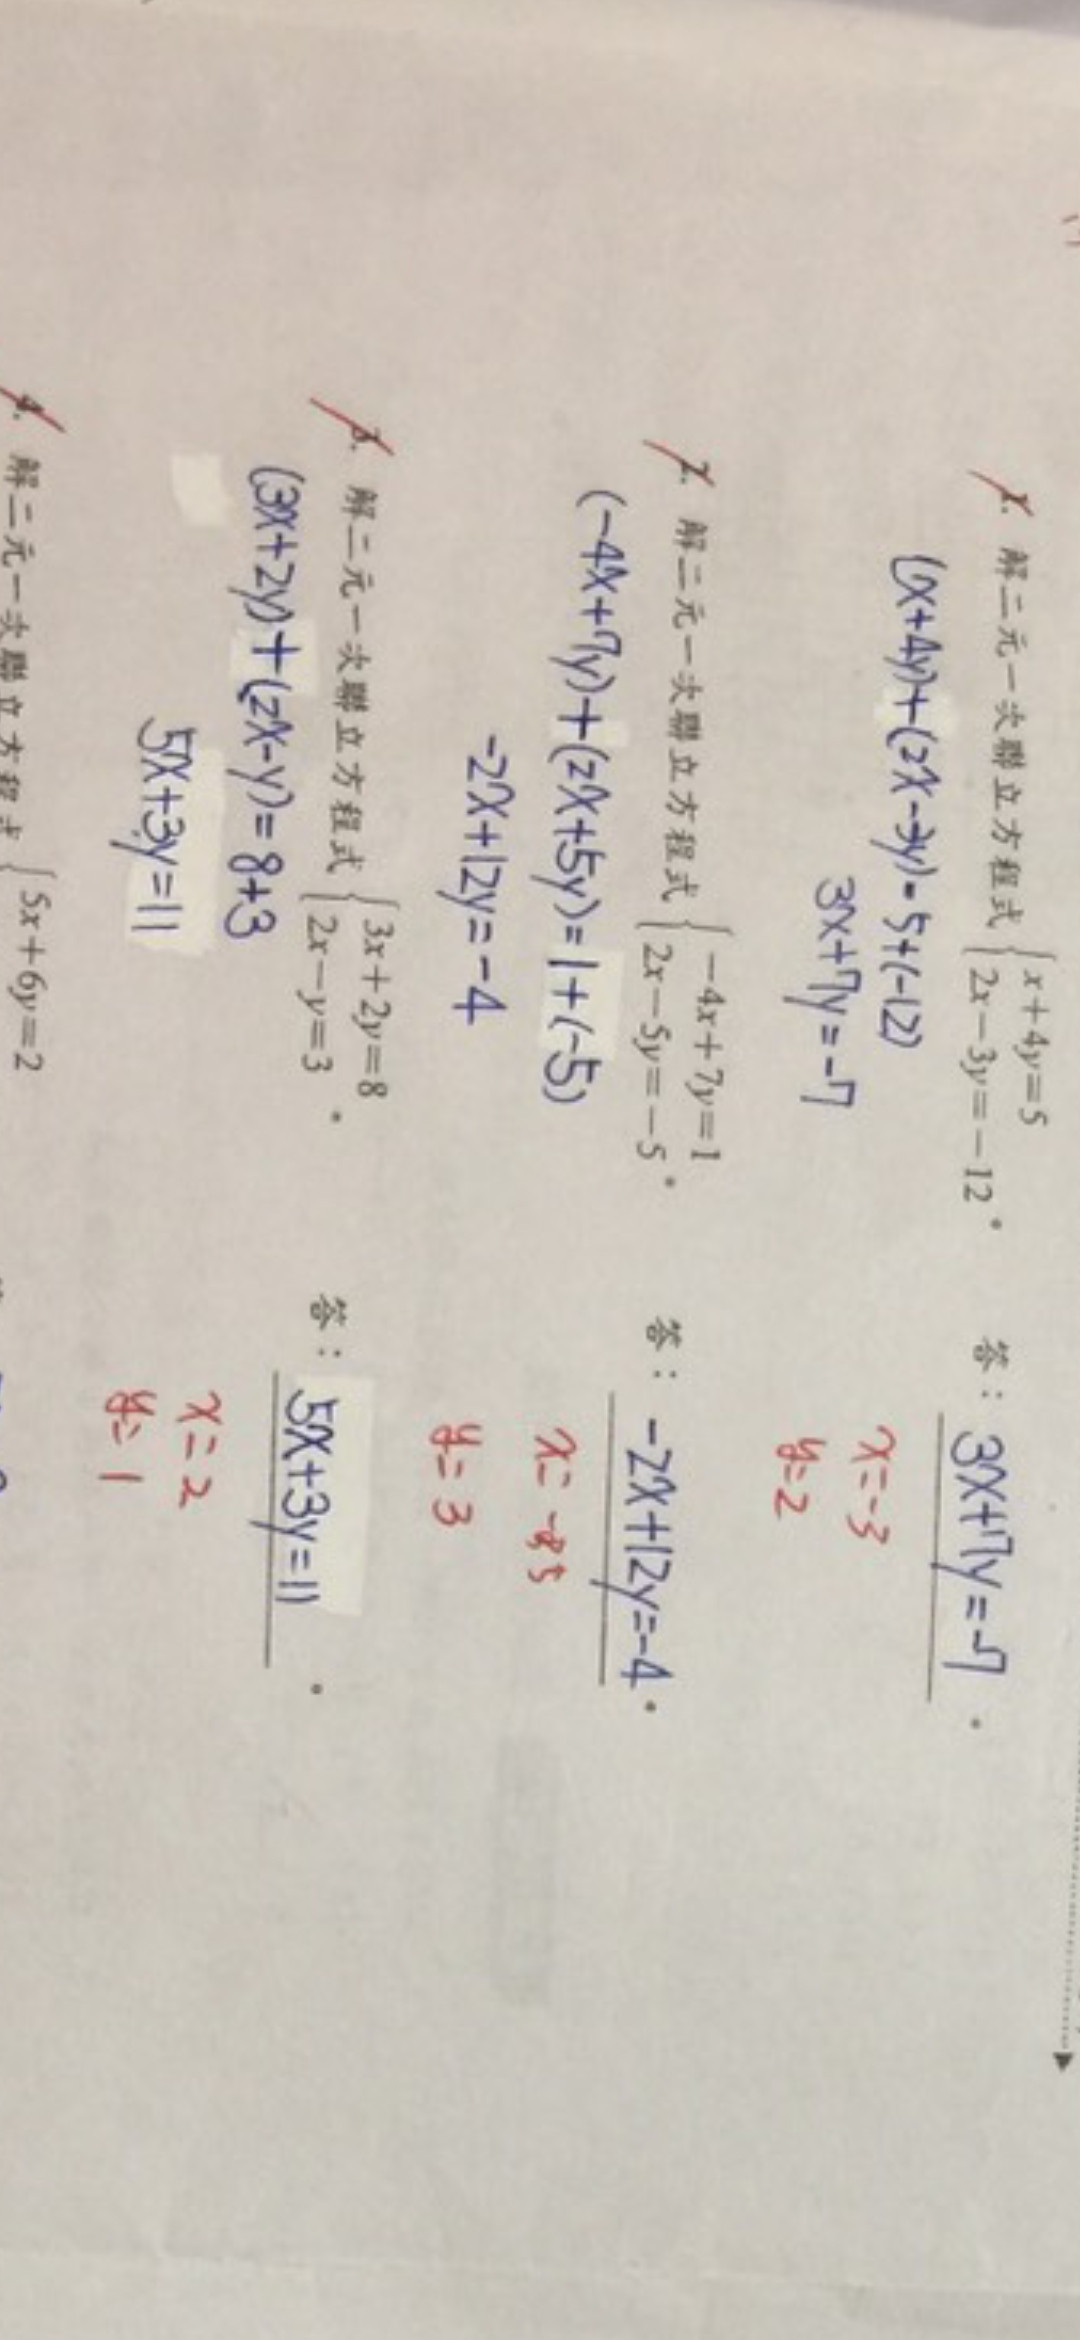 1. 解二元一次聯立方程式 { x+4y=5
2x-3y=-12 。 答：3x+7y=-7 。
(x+4y)+(2x-3y)=5+(-12)
3x+7y=-7
x=-3
y=2
2. 解二元一次聯立方程式 { -4x+7y=1
2x-5y=-5 。 答：-2x+12y=-4 。
(-4x+7y)+(2x+5y)=1+(-5)
-2x+12y=-4
y=3
3. 解二元一次聯立方程式 { 3x+2y=8
2x-y=3 。 答：5x+3y=11 。
(3x+2y)+(2x-y)=8+3
5x+3y=11
x=2
y=1
4. 解二元一次聯立方程式 { 5x+6y=2